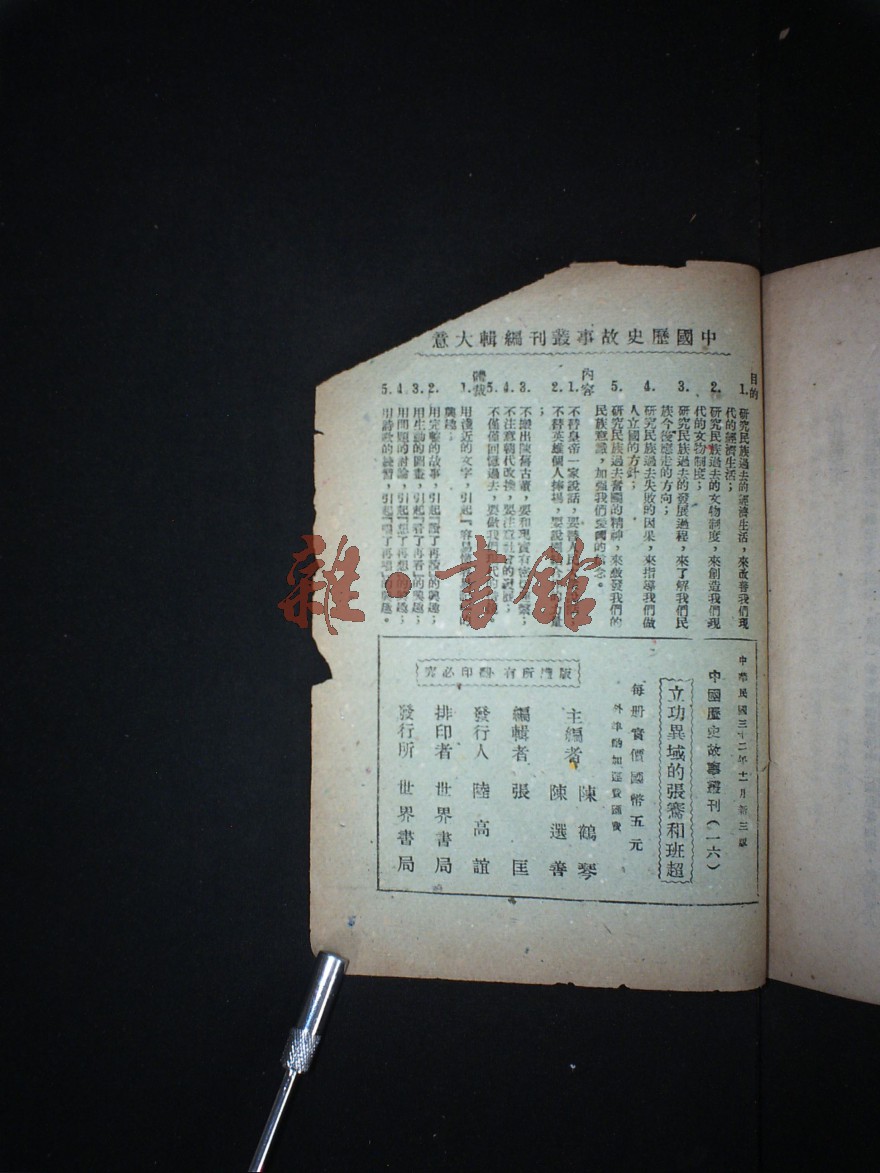 中國歷史故事叢刊編輯大意
目的
1. 研究民族過去的經濟生活，來改善我們現
代的經濟生活；
2. 研究民族過去的文物制度，來創造我們現
代的文物制度；
3. 研究民族過去的發展過程，來了解我們民
族今後應走的方向；
4. 研究民族過去失敗的因果，來指導我們做
人立國的方針；
5. 研究民族過去奮鬬的精神，來啟發我們的
民族意識，加強我們愛國的信念。
內容
1. 不替皇帝一家說話，要替人民
2. 不替英雄個人捧場，要說
；
3. 不搬出陳舊古董，要和現實有
4. 不注意朝代改換，要注意社會的
5. 不僅僅回憶過去，要做我們
體裁
1. 用淺近的文字，引起『容易
興趣；
2. 用完整的故事，引起『讀了再讀』的興趣；
3. 用生動的圖畫，引起『看了再看』的興趣；
4. 用問題的討論，引起『想了再想』的興趣；
5. 用詩歌的練習，引起『唱了再唱』的興趣。
中華民國三十二年十一月新三版
中國歷史故事叢刊（一六）
立功異域的張騫和班超
每册實價國幣五元
外埠酌加運費匯費
主編者 陳鶴琴
陳選善
編輯者 張匡
發行人 陸高誼
排印者 世界書局
發行所 世界書局
版權所有翻印必究
雜·書館